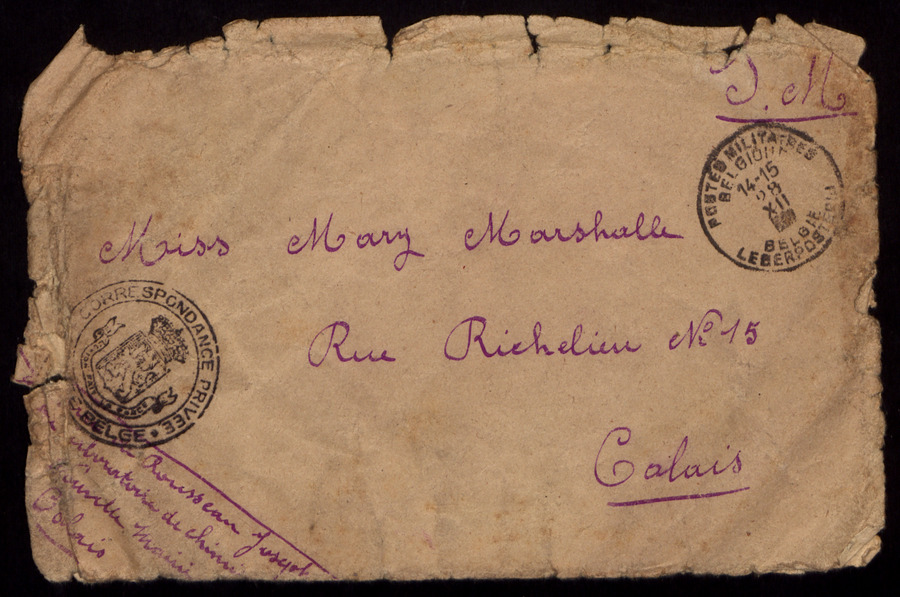 S. M
POSTES MILITAIRES
BELGIQUE
14-15
28
XII
BELGIE
LEGERPOSTERIJ
Miss Mary Marshalle
Rue Richelieu No 15
Calais
CORRESPONDANCE PRIVÉE
BELGE
Rousseau Joseph
Laboratoire de chimie
Calais